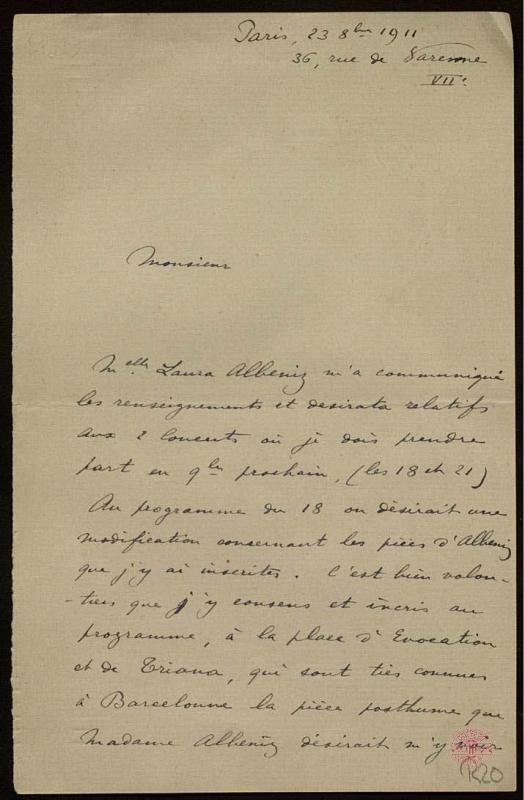 Paris, 23 8bre 1911
36, rue de Varenne
VIIe
Monsieur
Melle Laura Albeniz m'a communiqué
les renseignements et desirata relatifs
aux 2 Concerts où je dois prendre
part en 9bre prochain, (les 18 et 21)
Au programme du 18 on désirait une
modification concernant les pièces d'Albeniz
que j'y ai inscrites. C'est bien volon-
-tiers que j'y consens et incris au
programme, à la place d'Evocation
et de Triana, qui sont très connues
à Barcelonne la pièce posthume que
Madame Albéniz désirait m'y voir
R20